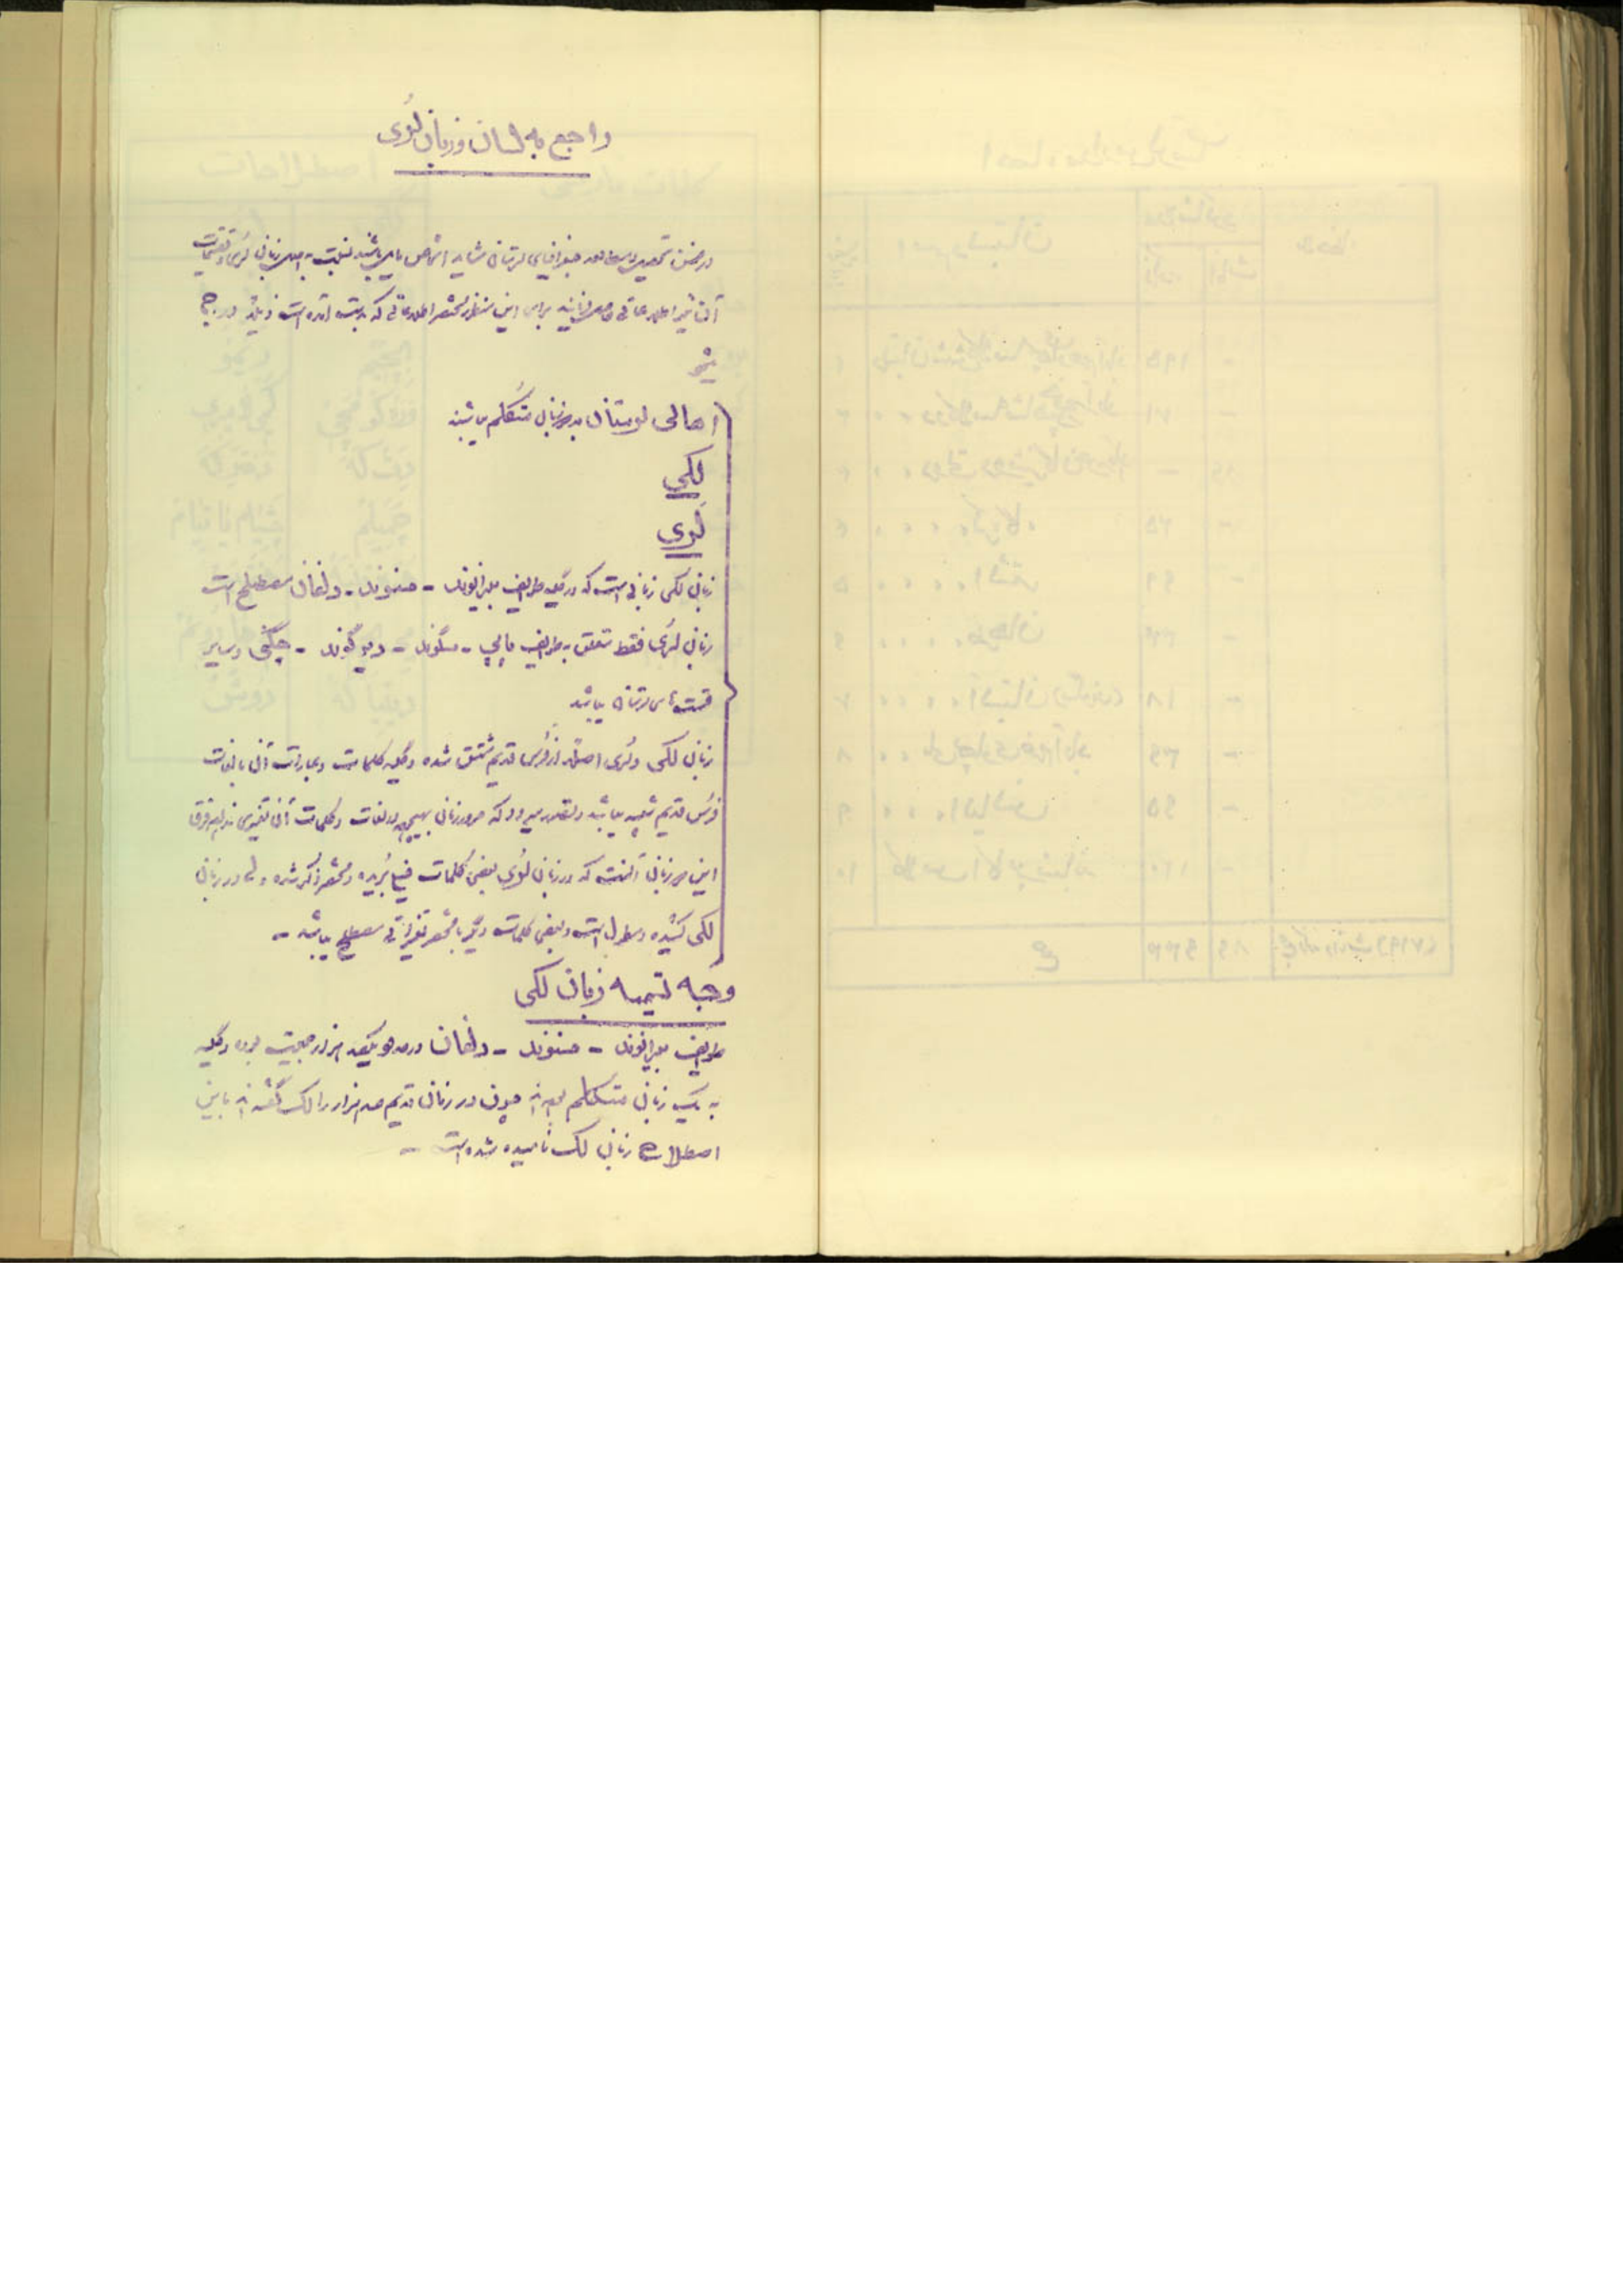 راجع به لسان و زبان لُری
در ضمن تحصیل و مطالعه جغرافیای لرستان شاید اشخاص مایل باشند نسبت به اصل زبان لری و تقسیمات
آن نیز اطلاعاتی حاصل نمایند برای این منظور مختصر اطلاعاتی که بدست آمده است ذیلاً درج
میشود
اهالی لرستان بدو زبان متکلم میباشند
لکی
لُری
زبان لکی زبانی است که در کلیه طوایف بیرانوند - حسنوند - دلفان مصطلح است
زبان لری فقط متعلق به طوایف پاپی - سگوند - دیرکوند - چگنی و سایر
قسمتهای لرستان میباشد
زبان لکی و لری اصلاً از فُرس قدیم مشتق شده و کلیه کلمات و عبارات آن با لغات
فُرس قدیم شبیه میباشد و تصور میرود که مرور زمان بهیچوجه در لغات و کلمات آن تغییری نداده فرق
این دو زبان آنست که در زبان لُری بعضی کلمات خیلی بُریده و مختصر ذکر شده ولی در زبان
لکی کشیده و مطول است و بعضی کلمات دیگر با مختصر تغییراتی مصطلح میباشد -
وجه تسمیه زبان لکی
طوایف بیرانوند - حسنوند - دلفان در حدود یکصد هزار جمعیت بوده و کلیه
به یک زبان متکلم بوده‌اند چون در زمان قدیم صد هزار را لک گفته‌اند باین
اصطلاح زبان لک نامیده شده است -